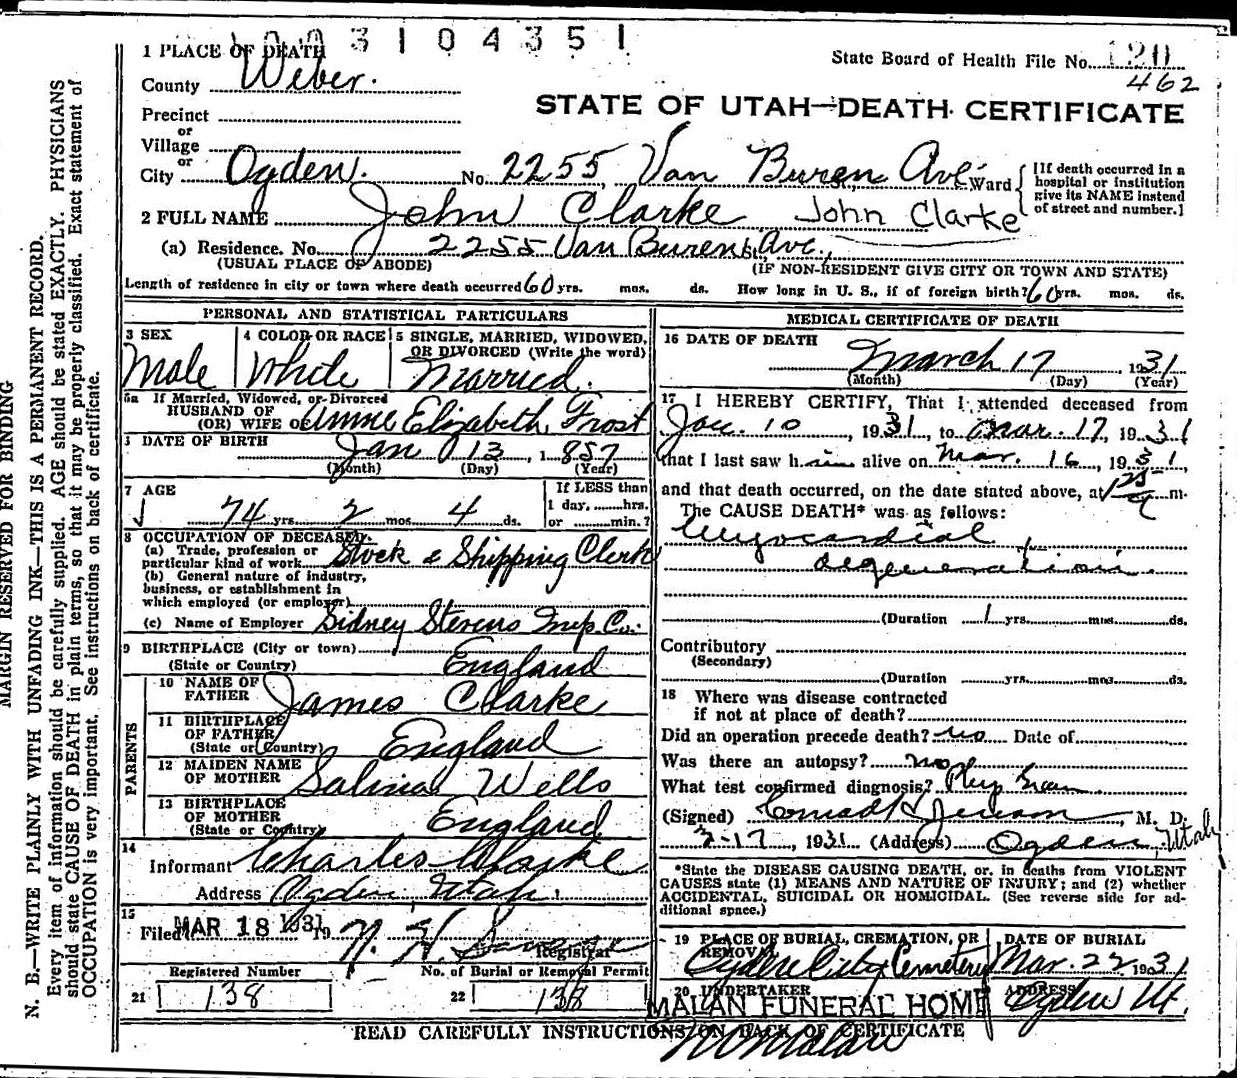 1003104351
1 PLACE OF DEATH
State Board of Health File No. 120
County Weber.
462
STATE OF UTAH—DEATH CERTIFICATE
Precinct
or
Village
or
City Ogden. No. 2255 Van Buren Ave. Ward
[If death occurred in a hospital or institution give its NAME instead of street and number.]
2 FULL NAME John Clarke John Clarke
(a) Residence. No. 2255 Van Buren St., Ave.,
(USUAL PLACE OF ABODE) (IF NON-RESIDENT GIVE CITY OR TOWN AND STATE)
Length of residence in city or town where death occurred 60 yrs. mos. ds. How long in U. S., if of foreign birth? 60 yrs. mos. ds.
PERSONAL AND STATISTICAL PARTICULARS
3 SEX 4 COLOR OR RACE 5 SINGLE, MARRIED, WIDOWED, OR DIVORCED (Write the word)
Male White Married.
5a If Married, Widowed, or Divorced
HUSBAND OF
(OR) WIFE OF Annie Elizabeth Frost
DATE OF BIRTH Jan 13, 1857
(Month) (Day) (Year)
7 AGE
74 yrs. 2 mos. 4 ds.
If LESS than
1 day, hrs.
or min.?
8 OCCUPATION OF DECEASED.
(a) Trade, profession or particular kind of work Stock & Shipping Clerk
(b) General nature of industry, business, or establishment in which employed (or employer)
(c) Name of Employer Sidney Stevens Imp. Co.
9 BIRTHPLACE (City or town)
(State or Country) England
PARENTS
10 NAME OF FATHER James Clarke
11 BIRTHPLACE OF FATHER (State or Country) England
12 MAIDEN NAME OF MOTHER Salina Wells
13 BIRTHPLACE OF MOTHER (State or Country) England
14
Informant Charles Clarke
Address Ogden, Utah
15
Filed MAR 18 1931 19 N. H.
Registrar
Registered Number No. of Burial or Removal Permit
21 138 22 138
MEDICAL CERTIFICATE OF DEATH
16 DATE OF DEATH
March 17, 1931
(Month) (Day) (Year)
17 I HEREBY CERTIFY, That I attended deceased from
Jan. 10, 1931, to Mar. 17, 1931
that I last saw him alive on Mar. 16, 1931,
and that death occurred, on the date stated above, at 125 a m.
The CAUSE DEATH* was as follows:
Myocardial
degeneration.
(Duration 1 yrs. mos. ds.
Contributory
(Secondary)
(Duration yrs. mos. ds.
18 Where was disease contracted
if not at place of death?
Did an operation precede death? no Date of
Was there an autopsy? no
What test confirmed diagnosis? Phys Exam.
(Signed) Conrad H Jenson, M. D.
3-17, 1931 (Address) Ogden, Utah
*State the DISEASE CAUSING DEATH, or, in deaths from VIOLENT
CAUSES state (1) MEANS AND NATURE OF INJURY; and (2) whether
ACCIDENTAL, SUICIDAL OR HOMICIDAL. (See reverse side for ad-
ditional space.)
19 PLACE OF BURIAL, CREMATION, OR REMOVAL DATE OF BURIAL
Ogden City Cemetery Mar. 22, 1931
20 UNDERTAKER ADDRESS
MALAN FUNERAL HOME Ogden Ut.
READ CAREFULLY INSTRUCTIONS ON BACK OF CERTIFICATE
MARGIN RESERVED FOR BINDING
N. B.—WRITE PLAINLY WITH UNFADING INK—THIS IS A PERMANENT RECORD.
Every item of information should be carefully supplied. AGE should be stated EXACTLY. PHYSICIANS
should state CAUSE OF DEATH in plain terms, so that it may be properly classified. Exact statement of
OCCUPATION is very important. See instructions on back of certificate.